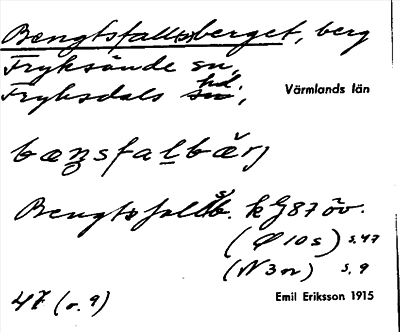 Bængtsfall(s)berget, berg
Fryksände sn,
Fryksdals sn hd.,
Värmlands län
bæŋsfaḷbærj
Bengtsfallsb. k G87 öv.
(Ø 10 s) s. 47
(N 3 n) s. 9
47 (s. 9)
Emil Eriksson 1915